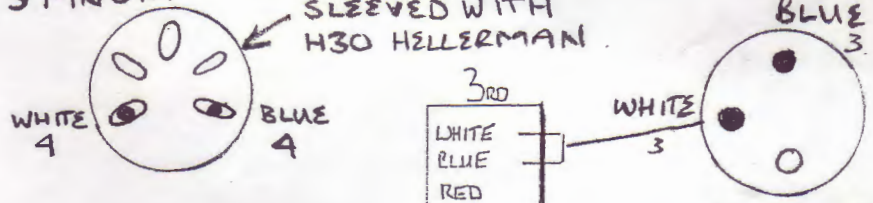 SLEEVED WITH
H30 HELLERMAN
WHITE
4
BLUE
4
3RD
WHITE
BLUE
RED
WHITE
3
BLUE
3